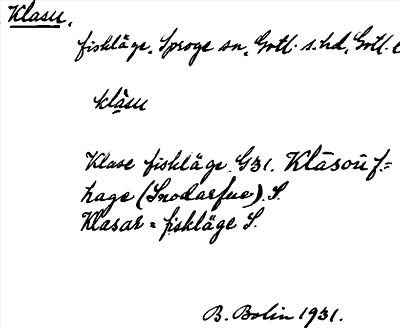 Klasu.
fiskläge. Sproge sn, Gotl. s. hd, Gotl. l
klāsu
Klase fiskläge. G31. Klāsoū f.=
hage (Snodarfue). S.
Klasar = fiskläge S.
B. Bolin 1931.